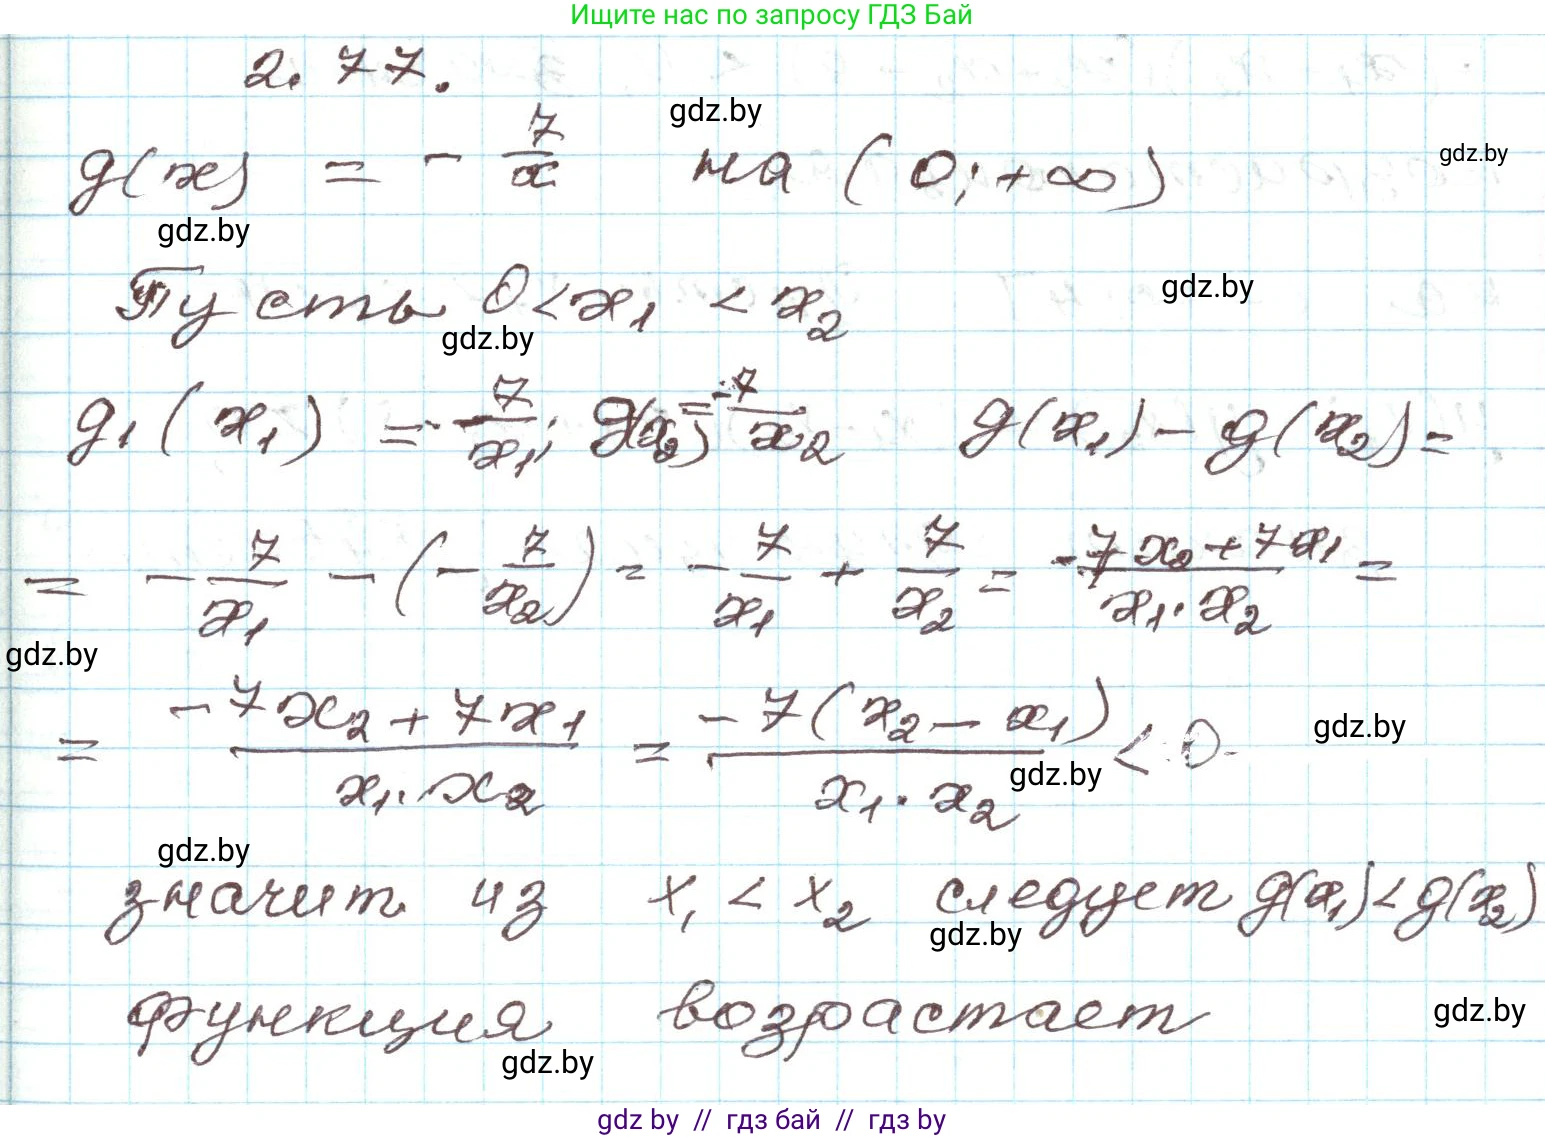 Ищите нас по запросу ГДЗ Бай
2.77.
gdz.by
g(x) = - 7/x на (0; +∞)
gdz.by
gdz.by
Пусть 0 < x₁ < x₂
gdz.by
gdz.by
g₁(x₁) = - 7/x₁; g(x₂) = -7/x₂ g(x₁) - g(x₂) =
= - 7/x₁ - (- 7/x₂) = - 7/x₁ + 7/x₂ = (-7x₂ + 7x₁)/(x₁ · x₂) =
gdz.by
= (-7x₂ + 7x₁)/(x₁ · x₂) = (-7(x₂ - x₁))/(x₁ · x₂) < 0
gdz.by
gdz.by
gdz.by
значит из x₁ < x₂ следует g(x₁) < g(x₂)
gdz.by
функция возрастает
gdz.by
gdz.by
gdz by // гдз бай // гдз by